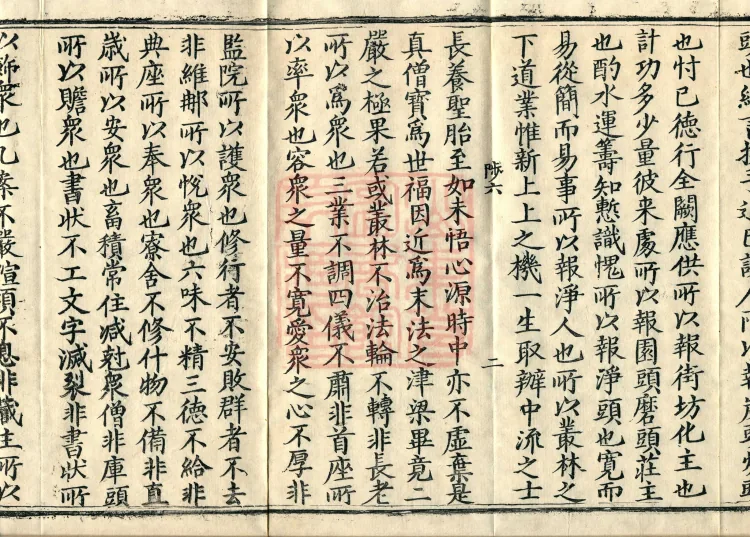 也忖己德行全闕應供所以報街坊化主也
計功多少量彼來處所以報園頭磨頭莊主
也酌水運籌知慙識愧所以報淨頭也寬而
易從簡而易事所以報淨人也所以叢林之
下道業惟新上上之機一生取辦中流之士
陟六
二
長養聖胎至如未悟心源時中亦不虛棄是
真僧寶爲世福因近爲末法之津梁畢竟二
嚴之極果若或叢林不治法輪不轉非長老
所以爲衆也三業不調四儀不肅非首座所
以率衆也容衆之量不寬愛衆之心不厚非
監院所以護衆也修行者不安敗群者不去
非維那所以悅衆也六味不精三德不給非
典座所以奉衆也寮舍不修什物不備非直
歲所以安衆也畜積常住減尅衆僧非庫頭
所以贍衆也書狀不工文字滅裂非書狀所
以飾衆也几案不嚴喧煩不息非藏主所以